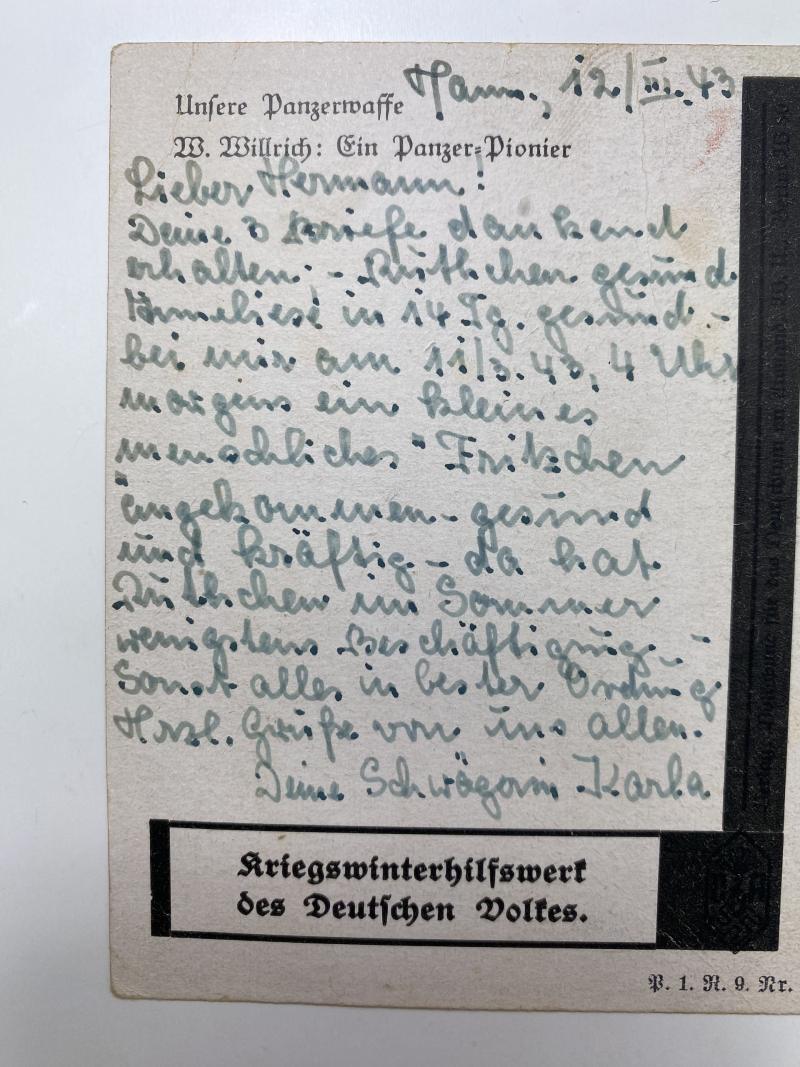 Hann., 12./III. 43
Unsere Panzerwaffe
W. Willrich: Ein Panzer-Pionier
Lieber Hermann!
Deine 3 Briefe dankend
erhalten. - Rütchen gesund
Anneliese in 14 Tg. gesund. -
bei mir am 11/3. 43, 4 Uhr
morgens ein kleines
menschliches "Fritzchen"
angekommen - gesund
und kräftig - da hat
Rütchen im Sommer
wenigstens Beschäftigung. -
Sonst alles in bester Ordnung
Hrzl. Grüße von uns allen.
Deine Schwägerin Karla
Kriegswinterhilfswerk
des Deutschen Volkes.
P. 1. R. 9. Nr.